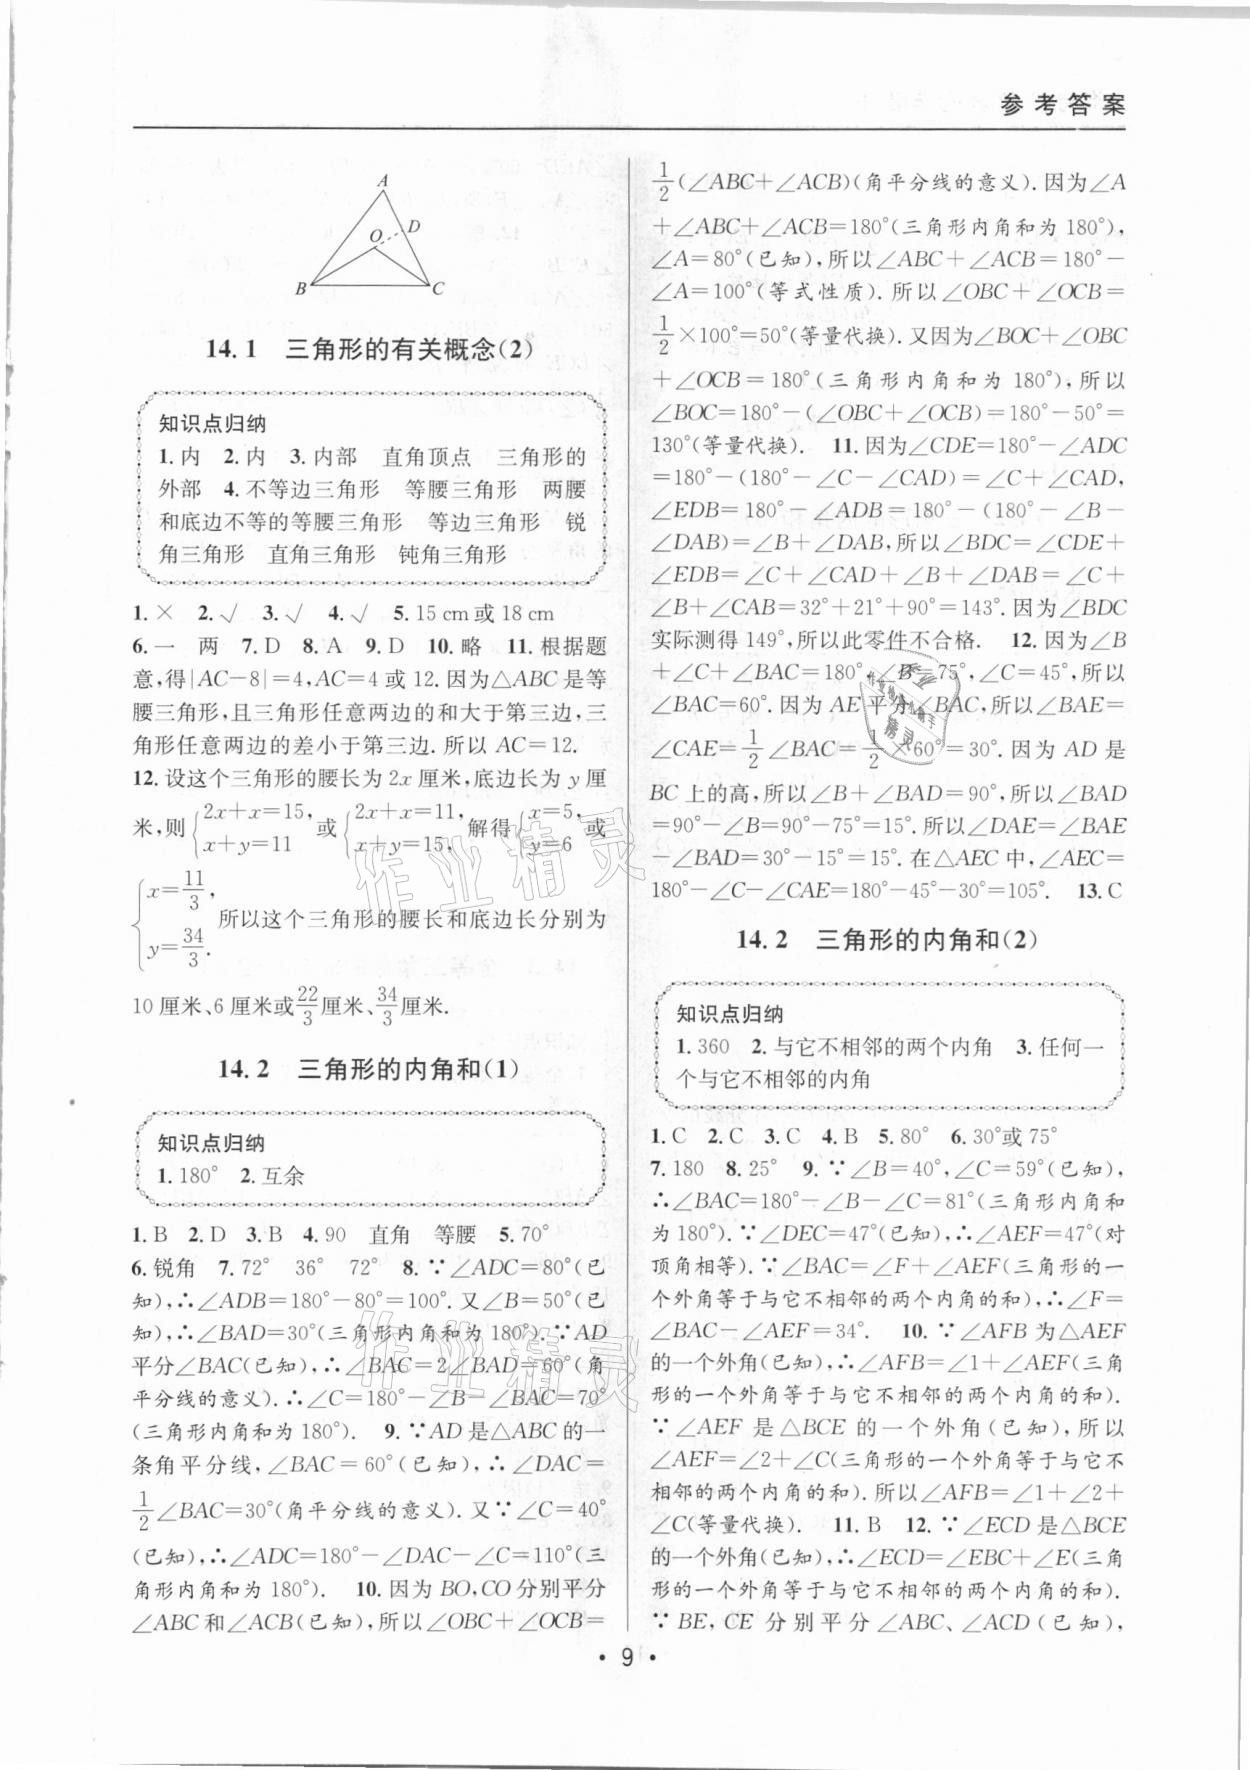 参考答案
A
O
D
B
C
14.1 三角形的有关概念(2)
知识点归纳
1.内 2.内 3.内部 直角顶点 三角形的
外部 4.不等边三角形 等腰三角形 两腰
和底边不等的等腰三角形 等边三角形 锐
角三角形 直角三角形 钝角三角形
1.× 2.√ 3.√ 4.√ 5.15 cm或18 cm
6.一 两 7.D 8.A 9.D 10.略 11.根据题
意,得|AC-8|=4,AC=4或12.因为△ABC是等
腰三角形,且三角形任意两边的和大于第三边,三
角形任意两边的差小于第三边.所以AC=12.
12.设这个三角形的腰长为2x厘米,底边长为y厘
米,则{2x+x=15, x+y=11 或{2x+x=11, x+y=15, 解得{x=5, y=6 或
{x=11/3, y=34/3. 所以这个三角形的腰长和底边长分别为
10厘米、6厘米或22/3厘米、34/3厘米.
14.2 三角形的内角和(1)
知识点归纳
1.180° 2.互余
1.B 2.D 3.B 4.90 直角 等腰 5.70°
6.锐角 7.72° 36° 72° 8.∵∠ADC=80°(已
知),∴∠ADB=180°-80°=100°.又∠B=50°(已
知),∴∠BAD=30°(三角形内角和为180°).∵AD
平分∠BAC(已知),∴∠BAC=2∠BAD=60°(角
平分线的意义).∴∠C=180°-∠B-∠BAC=70°
(三角形内角和为180°). 9.∵AD是△ABC的一
条角平分线,∠BAC=60°(已知),∴∠DAC=
1/2∠BAC=30°(角平分线的意义).又∵∠C=40°
(已知),∴∠ADC=180°-∠DAC-∠C=110°(三
角形内角和为180°). 10.因为BO,CO分别平分
∠ABC和∠ACB(已知),所以∠OBC+∠OCB=
1/2(∠ABC+∠ACB)(角平分线的意义).因为∠A
+∠ABC+∠ACB=180°(三角形内角和为180°),
∠A=80°(已知),所以∠ABC+∠ACB=180°-
∠A=100°(等式性质).所以∠OBC+∠OCB=
1/2×100°=50°(等量代换).又因为∠BOC+∠OBC
+∠OCB=180°(三角形内角和为180°),所以
∠BOC=180°-(∠OBC+∠OCB)=180°-50°=
130°(等量代换). 11.因为∠CDE=180°-∠ADC
=180°-(180°-∠C-∠CAD)=∠C+∠CAD,
∠EDB=180°-∠ADB=180°-(180°-∠B-
∠DAB)=∠B+∠DAB,所以∠BDC=∠CDE+
∠EDB=∠C+∠CAD+∠B+∠DAB=∠C+
∠B+∠CAB=32°+21°+90°=143°.因为∠BDC
实际测得149°,所以此零件不合格. 12.因为∠B
+∠C+∠BAC=180°,∠B=75°,∠C=45°,所以
∠BAC=60°.因为AE平分∠BAC,所以∠BAE=
∠CAE=1/2∠BAC=1/2×60°=30°.因为AD是
BC上的高,所以∠B+∠BAD=90°,所以∠BAD
=90°-∠B=90°-75°=15°.所以∠DAE=∠BAE
-∠BAD=30°-15°=15°.在△AEC中,∠AEC=
180°-∠C-∠CAE=180°-45°-30°=105°. 13.C
14.2 三角形的内角和(2)
知识点归纳
1.360 2.与它不相邻的两个内角 3.任何一
个与它不相邻的内角
1.C 2.C 3.C 4.B 5.80° 6.30°或75°
7.180 8.25° 9.∵∠B=40°,∠C=59°(已知),
∴∠BAC=180°-∠B-∠C=81°(三角形内角和
为180°).∵∠DEC=47°(已知),∴∠AEF=47°(对
顶角相等).∵∠BAC=∠F+∠AEF(三角形的一
个外角等于与它不相邻的两个内角的和),∴∠F=
∠BAC-∠AEF=34°. 10.∵∠AFB为△AEF
的一个外角(已知),∴∠AFB=∠1+∠AEF(三角
形的一个外角等于与它不相邻的两个内角的和).
∵∠AEF是△BCE的一个外角(已知),所以
∠AEF=∠2+∠C(三角形的一个外角等于与它不
相邻的两个内角的和).所以∠AFB=∠1+∠2+
∠C(等量代换). 11.B 12.∵∠ECD是△BCE
的一个外角(已知),∴∠ECD=∠EBC+∠E(三角
形的一个外角等于与它不相邻的两个内角的和).
∵BE,CE分别平分∠ABC、∠ACD(已知),
· 9 ·
作业精灵
作业精灵